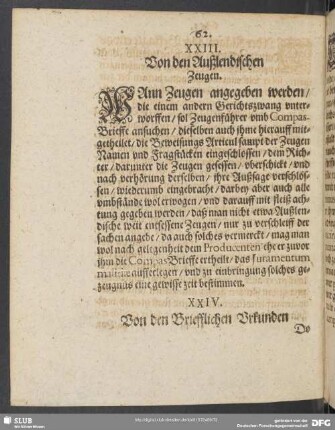 62.
XXIII.
Von den Außlendischen
Zeugen.
WAnn Zeugen angegeben werden /
die einem andern Gerichtszwang vnter-
worffen / sol Zeugenführer vmb Compas-
Brieffe ansuchen / dieselben auch ihme hierauff mit-
getheilet / die Beweisungs Articul sampt der Zeugen
Namen vnd Fragstücken eingeschlossen / dem Rich-
ter / darunter die Zeugen gesessen / vberschickt / vnd
nach verhörung derselben / ihre Außsage verschlos-
sen / wiederumb eingebracht / darbey aber auch alle
vmbstände wol erwogen / vnd darauff mit fleiß ach-
tung gegeben werden / daß man nicht etwa Außlen-
dische weit entsessene Zeugen / nur zu verschleiff der
sachen angebe / da auch solches vermerckt / mag man
wol nach gelegenheit dem Producenten ehe er zuvor
ihm die Compas Brieffe ertheilt / das Iuramentum
malitiæ aufferlegen / vnd zu einbringung solches ge-
zeugnüs eine gewisse zeit bestimmen.
XXIV.
Von den Briefflichen Vrkunden
SLUB
Wir führen Wissen.
gefördert von der
Deutschen Forschungsgemeinschaft
DFG